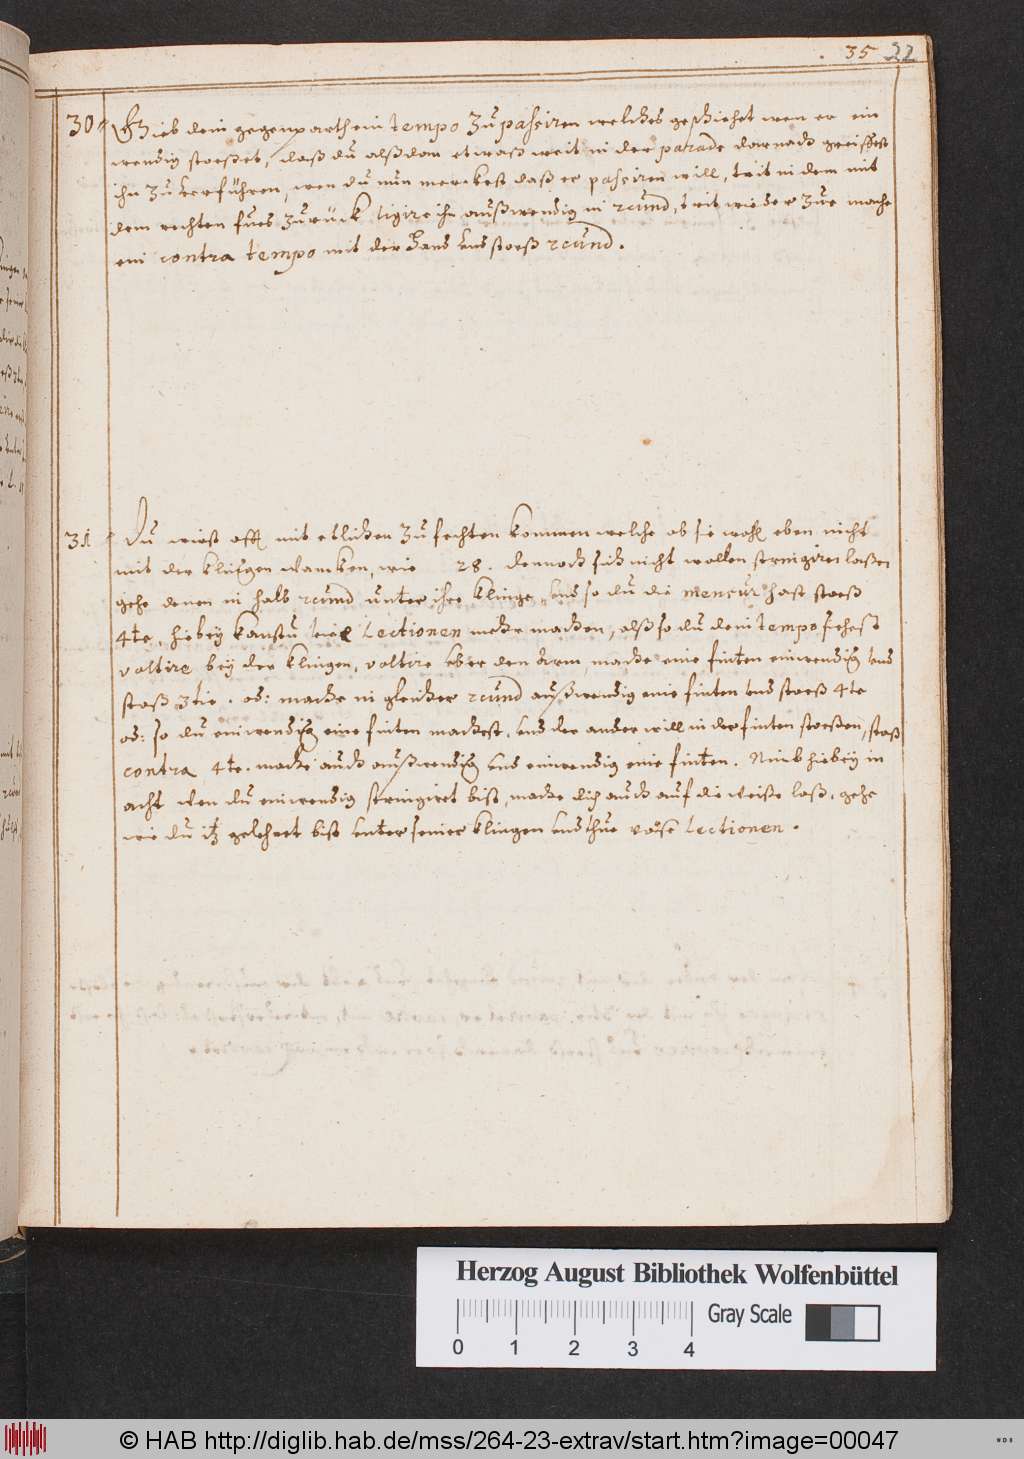 35 22
30 Gieb dein gegenparth ein tempo zu passiren welches geschiehet wen er ein
wendig stoeßet, daß du alßdan etwaß weit in der parade darnach greiffest
ihn zu verführen, wen du nun merckest daß er passiren will, trit in dem mit
dem rechten fues zurück ligire ihn außwendig in 2cund, trit wieder zue mache
ein contra tempo mit der Hand und stoeß 2cund.
31 Du wirst offt mit etlichen zu fechten kommen welche ob sie wohl eben nicht
mit der klingen wancken, wie 28. dennoch sich nicht wollen stringiren laßen
gehe denen in halb 2cund unter ihre klinge, und so du die mensur hast stoeß
4te, hiebey kanstu viel Lectionen mehr machen, alß so du dein tempo sehest
voltire bey der klingen, voltire uber den arm, mache eine finten einwendig und
stoß 3tie. od: mache in gleicher 2cund außwendig eine finten und stoeß 4te
od: so du einwendig eine finten machest, und der ander will in der finten stoeßen, stoß
contra 4te. mache auch außwendig und einwendig eine finten. Nimb hiebey in
acht wen du einwendig stringiret bist, mache dich auch auf die weiße loß, gehe
wie du itz gelehret bist unter seiner klingen und thue Lectionen.
Herzog August Bibliothek Wolfenbüttel
Gray Scale
0 1 2 3 4
© HAB http://diglib.hab.de/mss/264-23-extrav/start.htm?image=00047